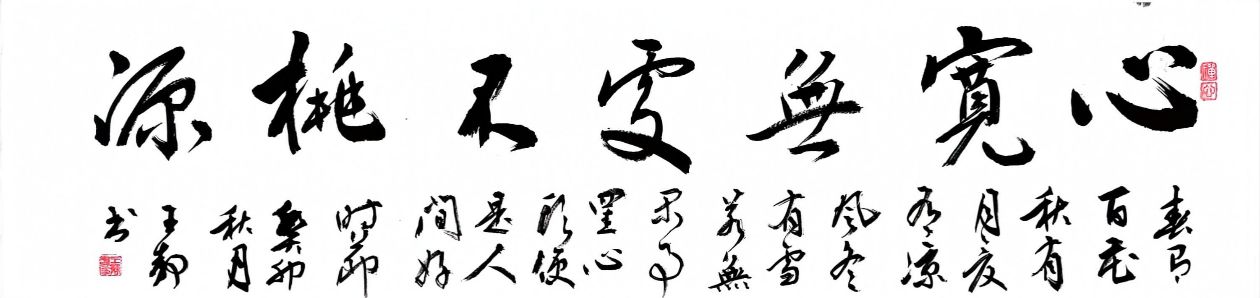 心寬無處不桃源
春有
百花
秋有
月夏
有凉
風冬
有雪
若無
闲事
罣心
头便
是人
間好
时節
癸卯
秋月
王
书